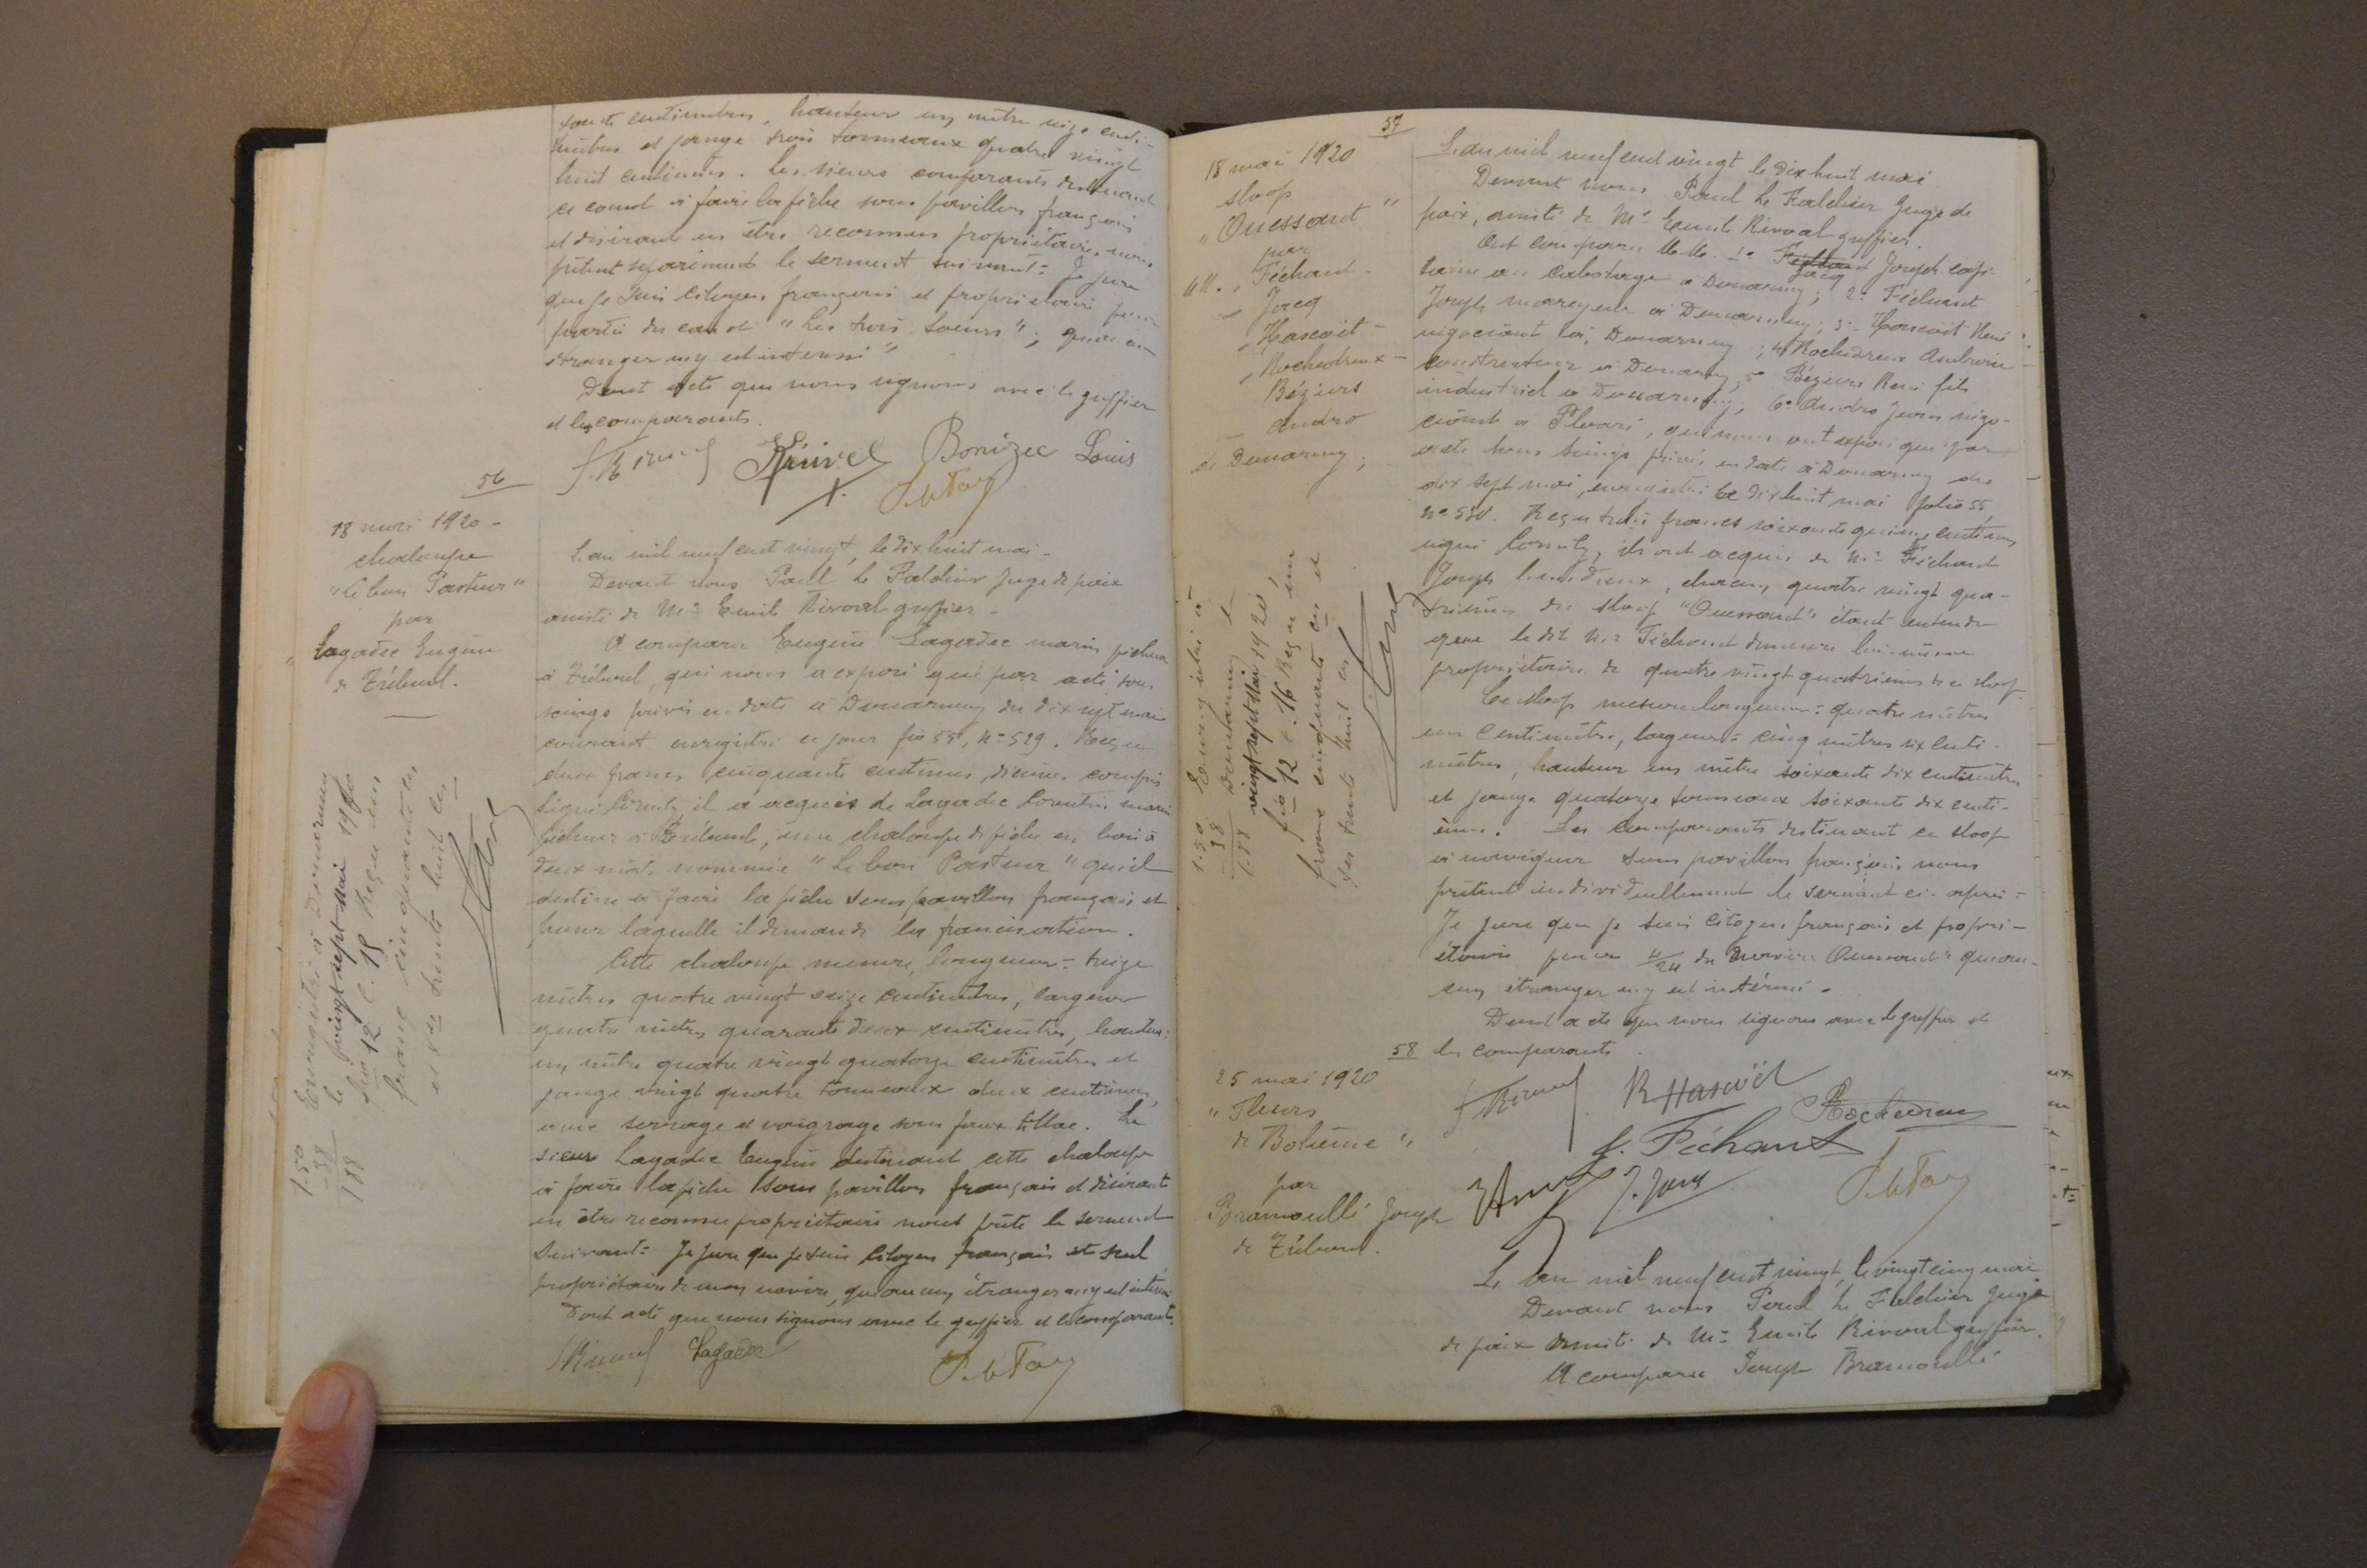 soixante centimètres, hauteur un mètre seize centi-
mètres et jauge trois tonneaux quatre vingt
huit centièmes. Les sieurs comparants destinant
ce canot à faire la pêche sous pavillon français
et désirant en être reconnus propriétaires nous
prêtent séparément le serment suivant = Je jure
que je suis citoyen français et propriétaire pour
partie du canot "Les trois Soeurs"; qu'aucun
étranger n'y est intéressé"
Dont acte que nous signons avec le greffier
et les comparants.
Bonizec Louis
56
18 mai 1920 -
chaloupe
"Le bon Pasteur"
par
Lagadec Eugène
de Tréboul.
Enregistré à Douarnenez
le vingt-sept Mai 1920
fio 12 c. 18 Reçu un
franc cinquante ces
et xes trente huit ces
1.50
38
1 88
L'an mil neuf cent vingt, le dix huit mai -
Devant nous Paul Le Faldier Juge de paix
assisté de Me Emile Rivoal greffier -
A comparu Eugène Lagadec marin pêcheur
à Tréboul, qui nous a exposé que par acte sous
seings privés en date à Douarnenez du dix sept mai
courant enregistré ce jour fio 55, No 529. Reçu
deux francs cinquante centimes, décimes compris
Signé Cornily, il a acquis de Lagadec Corentin marin
pêcheur à Tréboul, une chaloupe de pêche en bois à
deux mâts nommée "Le bon Pasteur" qu'il
destine à faire la pêche sous pavillon français et
pour laquelle il demande la francisation.
Cette chaloupe mesure, longueur = treize
mètres quatre vingt seize centimètres, largeur
quatre mètres quarante deux centimètres, hauteur =
un mètre quatre vingt quatorze centimètres et
jauge vingt quatre tonneaux deux centièmes,
avec serrage et vaigrage sous faux tillac. Le
sieur Lagadec Eugène destinant cette chaloupe
à faire la pêche sous pavillon français et désirant
en être reconnu propriétaire nous prête le serment
suivant = Je jure que je suis citoyen français et seul
propriétaire de mon navire, qu'aucun étranger n'y est intéressé
Dont acte que nous signons avec le greffier et le comparant.
Lagadec
57
18 mai 1920
sloop
"Ouessant"
par
MM. Féchant -
Jacq
Hascoët -
Rochedreux -
Béziers
Andro
de Douarnenez;
Enregistré à
Douarnenez le
vingt-sept Mai 1920
fio 12 c. 16 Reçu un
franc cinquante ces et
xes trente huit ces
1.50
38
1.88
L'an mil neuf cent vingt le dix huit mai
Devant nous Paul Le Faldier Juge de
paix, assisté de Me Emile Rivoal greffier.
Ont comparu MM. 1o Jacq Joseph capi-
taine au cabotage à Douarnenez; 2o Féchant
Joseph mareyeur à Douarnenez; 3o Hascoët René
négociant à Douarnenez; 4o Rochedreux Ambroise
constructeur à Douarnenez; 5o Béziers René fils
industriel à Douarnenez; 6o Andro Jean négo-
ciant à Ploaré, qui nous ont exposé que par
acte sous seings privés en date à Douarnenez du
dix sept mai, enregistré le dix huit mai folio 55,
No 530. Reçu trois francs soixante quinze centimes
signé Cornily, ils ont acquis de Mr Féchant
Joseph l'un d'eux, chacun quatre vingt qua-
trièmes du sloop "Ouessant" étant entendu
que le dit Mr Féchant demeure lui-même
propriétaire de quatre vingt quatrièmes de ce sloop.
Ce sloop mesure longueur = quatre mètres
un centimètre, largeur = cinq mètres six centi-
mètres, hauteur un mètre soixante dix centimètres
et jauge quatorze tonneaux soixante dix centi-
èmes. Les comparants destinant ce sloop
à naviguer sous pavillon français nous
prêtent individuellement le serment ci-après =
Je jure que je suis citoyen français et propri-
étaire pour 4/24 du navire Ouessant" qu'au-
cun étranger n'y est intéressé -
Dont acte que nous signons avec le greffier et
les comparants.
R Hascoët
Rochedreux
J. Féchant
J. Jacq
58
25 mai 1920
"Fleurs
de Bohème"
par
Bramoullé Joseph
de Tréboul.
L'an mil neuf cent vingt, le vingt cinq mai
Devant nous Paul Le Faldier Juge
de paix assisté de Me Emile Rivoal greffier.
A comparu Joseph Bramoullé